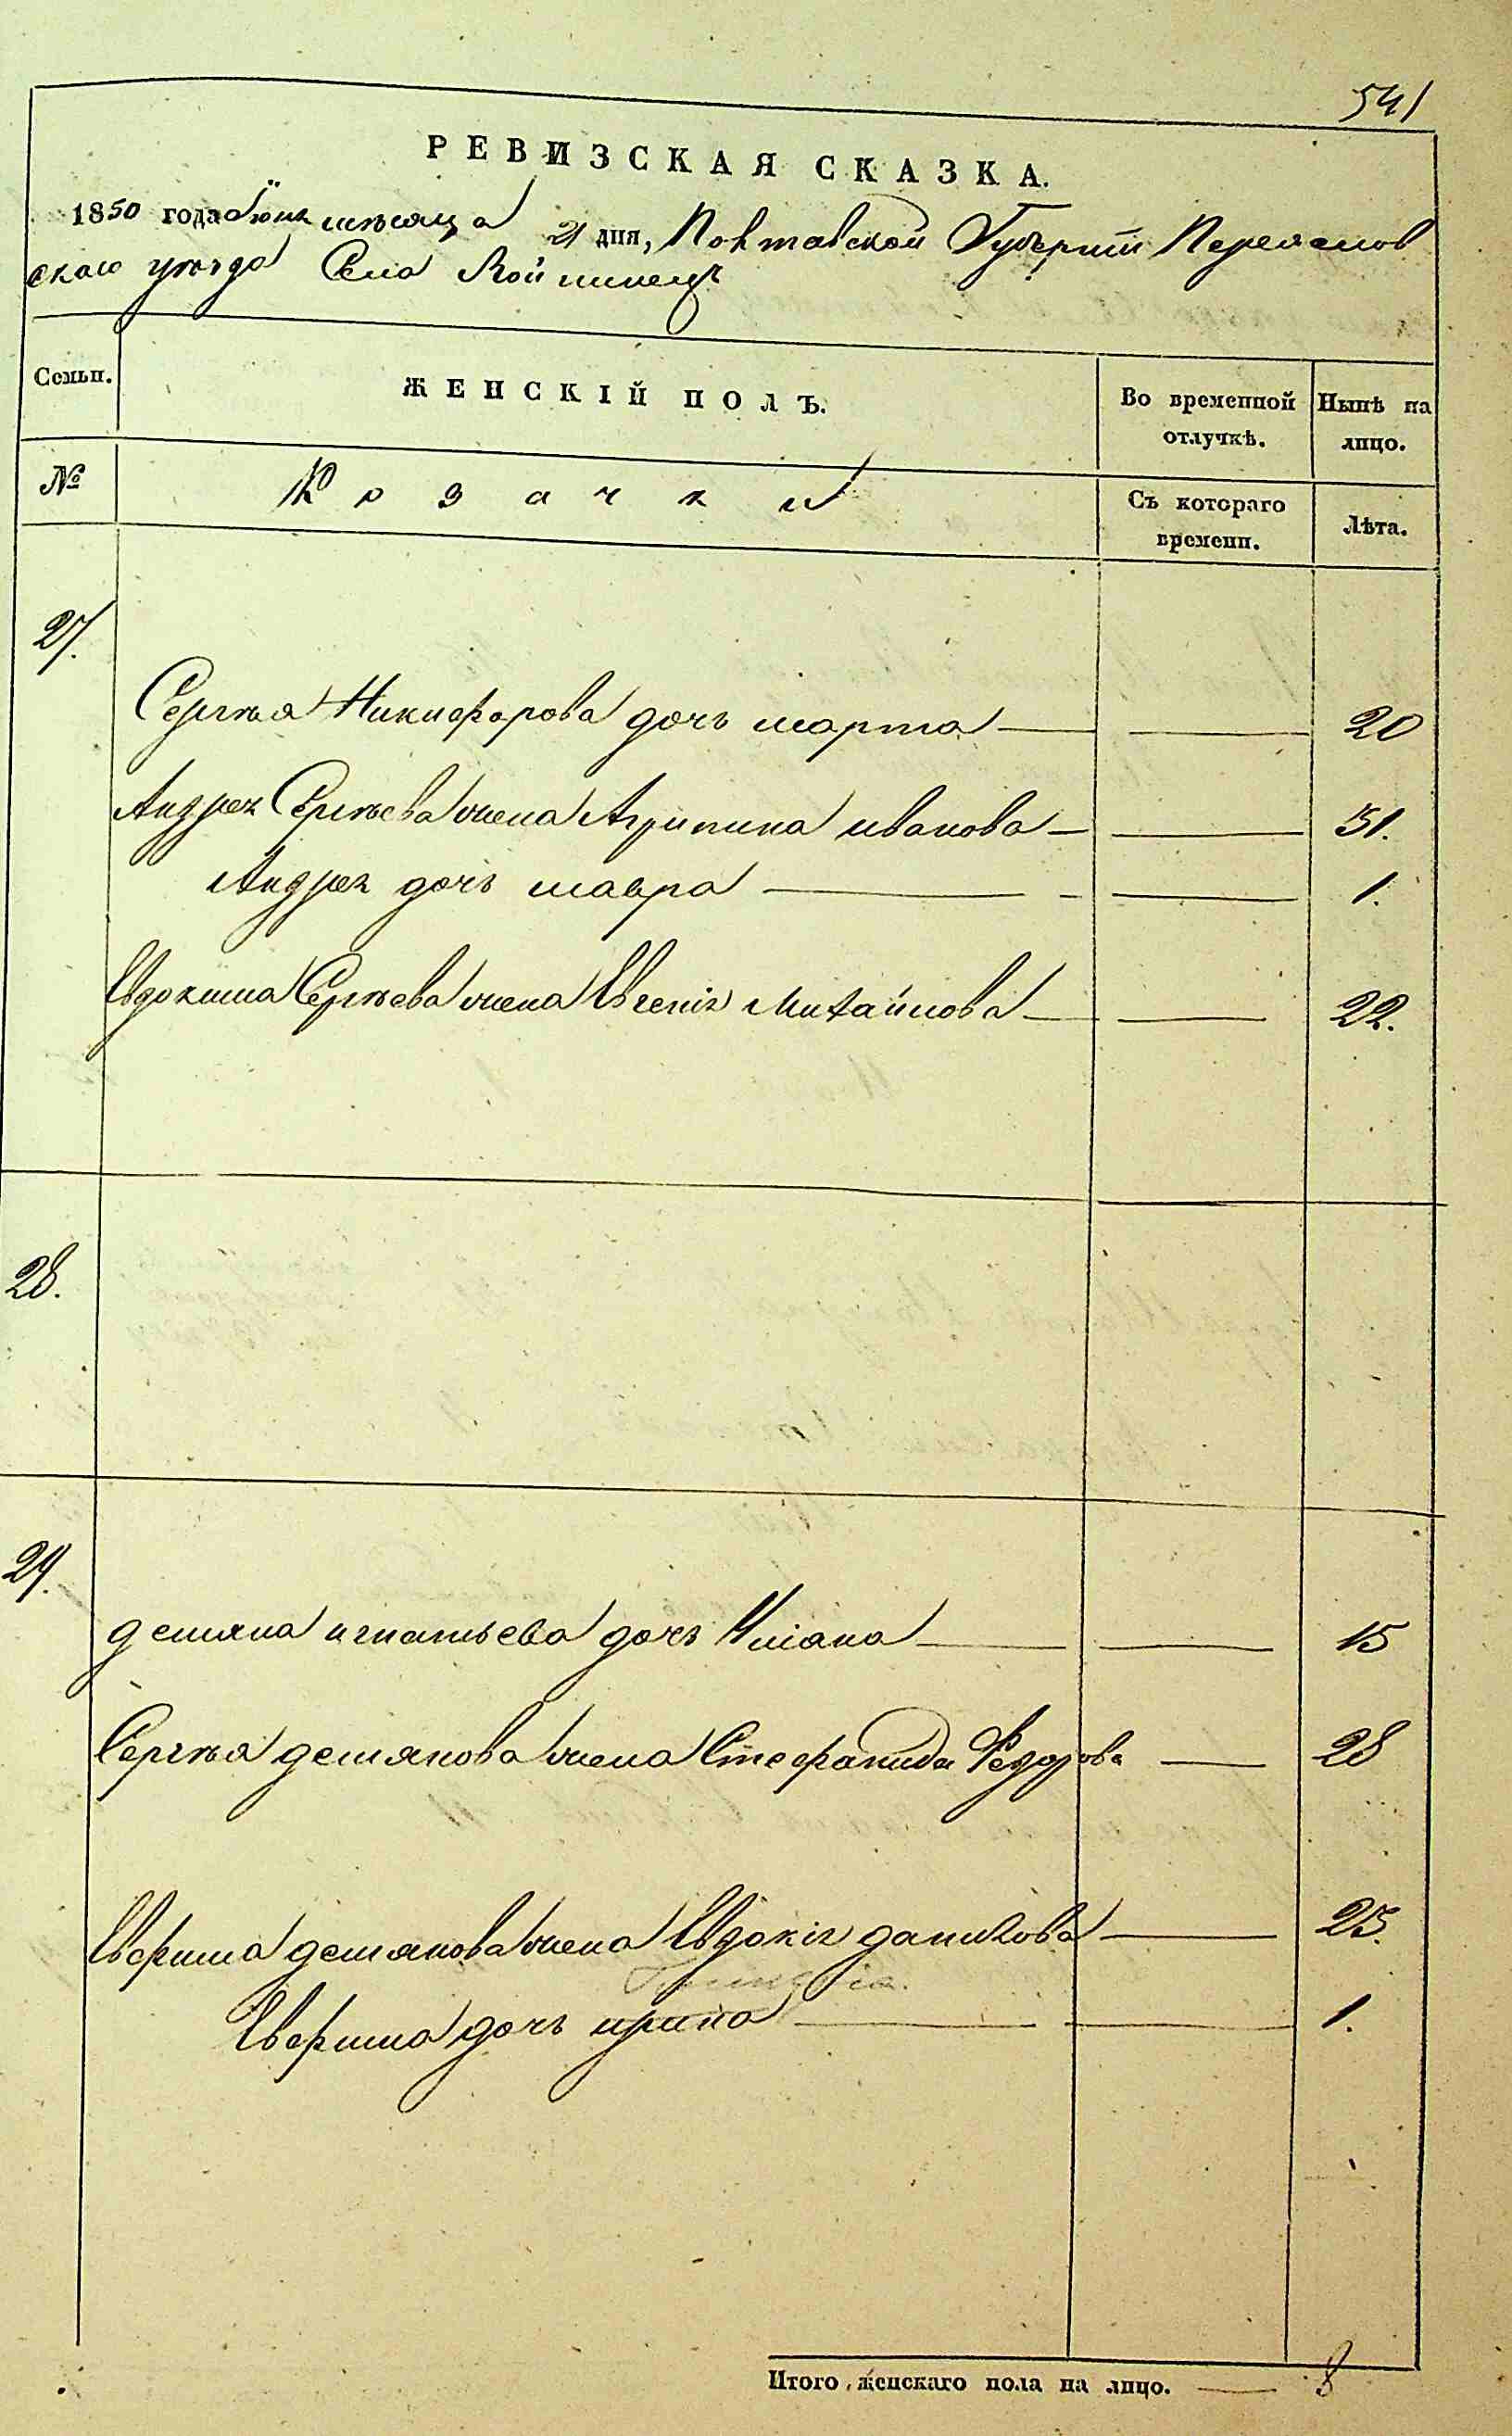 541
РЕВИЗСКАЯ СКАЗКА.
1850 года Іюня мѣсяца 21 дня, Полтавской Губерніи Переяслов
скаго уѣзда Села Войтовецъ
Семьи.
ЖЕНСКІЙ ПОЛЪ.
Во временной отлучкѣ.
Нынѣ на лицо.
№
Козачки
Съ котораго времени.
Лѣта.
27.
Сергѣя Никифорова дочь марта 20
Андрея Сергѣева жена Агрипина иванова 31.
Андрея дочь мавра 1.
Евдокима Сергѣева жена Евгенія Михайлова 22.
28.
29.
демяна игнатьева дочь Уліана 15
Сергѣя демянова жена Стефанида Федорова 28
Евфима демянова жена Евдокія данилова 25.
Евфима дочь ирина 1.
Итого женскаго пола на лицо. 8